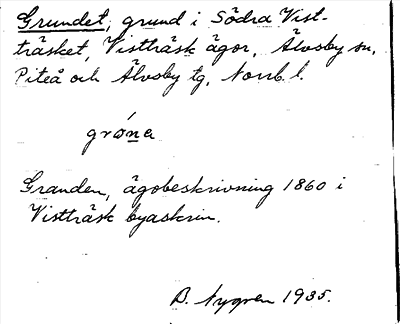 Grundet, grund i Södra Vist-
träsket, Vistträsk ägor, Älvsby sn,
Piteå och Älvsby tg, Norrb. l.
gróna
Granden, ägobeskrivning 1860 i
Vistträsk byaskrin.
B. Nygren 1935.